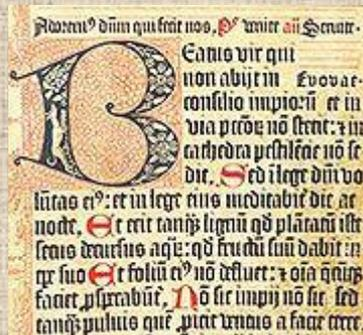 Adorem⁹ dñm qui fecit nos, P̕s venite añ Seruite.
Beatus vir qui
non abijt in Evovae.
consilio impiorū et in
via pccoꝝ nō stetit: ⁊ in
cathedra pestilēcie nō se
dit, Sed ī lege dñi vo
lūtas ei⁹: et in lege eius meditabit᷑ die ac
nocte, Et erit tanqȝ lignū qd̄ plātatū est
secus decursus aqꝝ: qd̄ fructū suū dabit in
tꝑe suo Et foliū ei⁹ nō defluet: ⁊ oīa q̄cūqȝ
faciet ꝓsꝑabūt᷑, Nō sic impij nō sic, sed
tanqȝ puluis quē ꝓicit ventus a facie terre